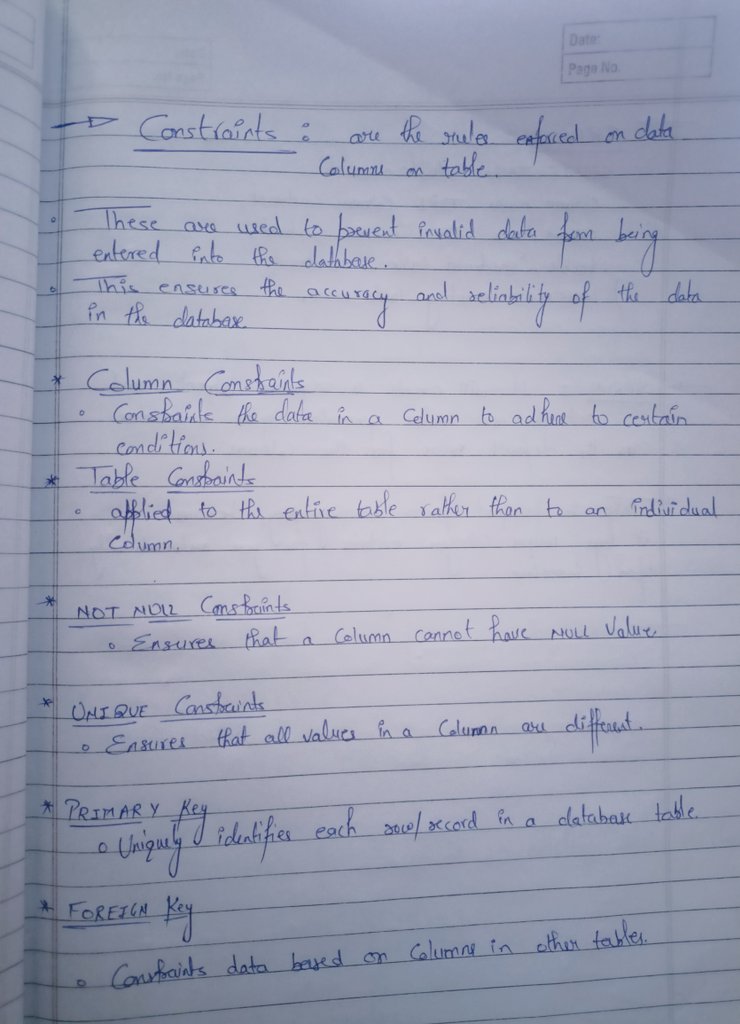 Date:
Page No.
→ Constraints : are the rules enforced on data
Columns on table.
◦ These are used to prevent invalid data from being
entered into the database.
◦ This ensures the accuracy and reliability of the data
in the database
* Column Constraints
◦ Constraints the data in a Column to adhere to certain
conditions.
* Table Constraints
◦ applied to the entire table rather than to an individual
Column.
* NOT NULL Constraints
◦ Ensures that a Column cannot have NULL Value.
* UNIQUE Constraints
◦ Ensures that all values in a Column are different.
* PRIMARY Key
◦ Uniquely identifies each row/record in a database table.
* FOREIGN Key
◦ Constraints data based on Columns in other tables.